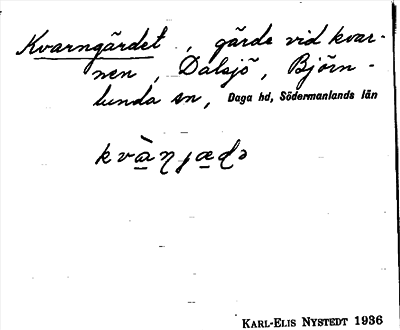 Kvarngärdet, gärde vid kvar-
nen, Dalsjö, Björn-
lunda sn, Daga hd, Södermanlands län
kvàꞃjædə
KARL-ELIS NYSTEDT 1936